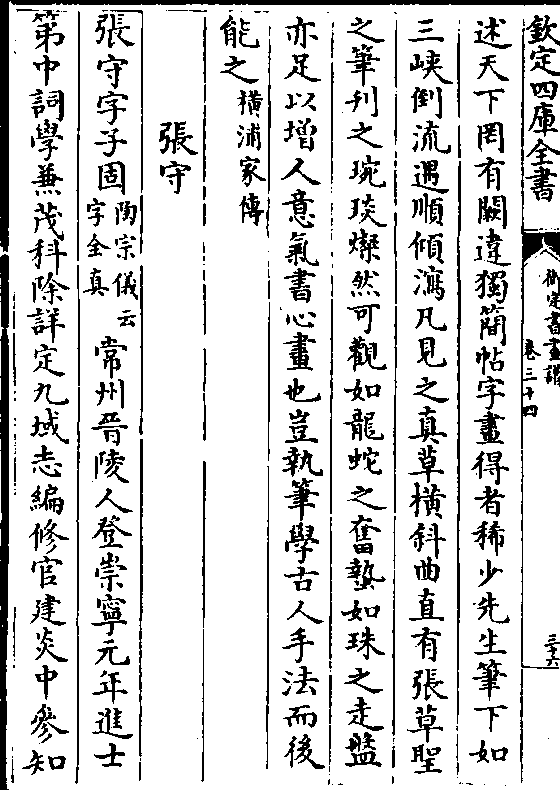 欽定四庫全書
御定書畫譜
卷三十四
三十六
述天下罔有闕違獨簡帖字畫得者稀少先生筆下如
三峽倒流遇順傾瀉凡見之真草橫斜曲直有張草聖
之筆刋之琬琰燦然可觀如龍蛇之奮蟄如珠之走盤
亦足以增人意氣書心畫也豈執筆學古人手法而後
能之橫浦家傳
張守
張守字子固陶宗儀云字全真常州晉陵人登崇寧元年進士
第中詞學兼茂科除詳定九域志編修官建炎中參知